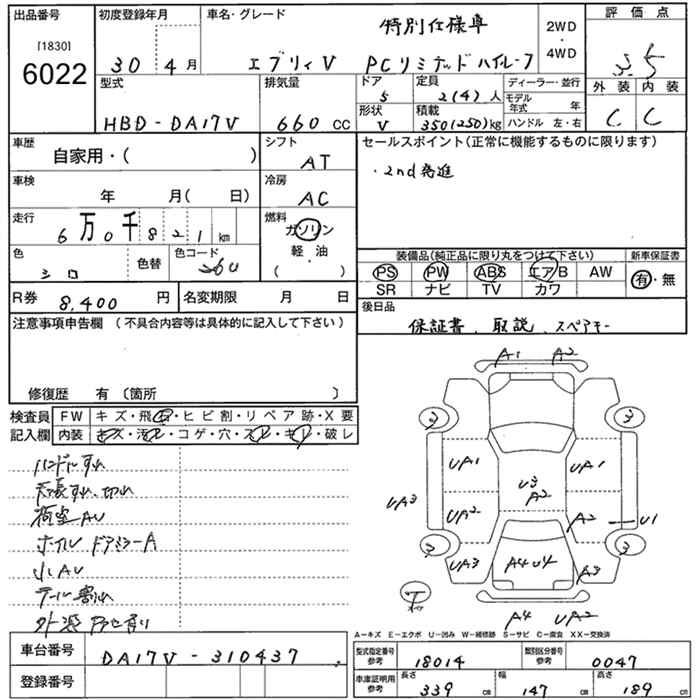 出品番号 初度登録年月 車名・グレード 特別仕様車 2WD・4WD 評価点
[1830]
6022
30年 4月 エブリィV PCリミテッド ハイルーフ 3.5
型式 排気量 ドア 5 定員 2(4)人 ディーラー・並行 外装 内装
HBD-DA17V 660cc 形状 V 積載 350(250)kg モデル年式 年 ハンドル 左・右 C C
車歴 自家用・( ) シフト AT セールスポイント(正常に機能するものに限ります)
・2nd発進
車検 年 月( 日) 冷房 AC
走行 6万0千821km 燃料 ガソリン 軽・油 ・ ( )
色 シロ 色替 色コード 26U 装備品(純正品に限り丸をつけて下さい) 新車保証書
PS PW ABS エアB AW 有・無
SR ナビ TV カワ
R券 8,400円 名変期限 月 日 後日品
保証書、取説、スペアキー
注意事項申告欄 (不具合内容等は具体的に記入して下さい)
修復歴 有〔箇所 〕
検査員記入欄 FW キズ・飛石・ヒビ割・リペア跡・X要
内装 キズ・汚レ・コゲ・穴・スレ・キレ・破レ
ハンドルすれ
天張すれ、切れ
荷室AU
ホイル ドアミラーA
小AU
テール割れ
A1 A2
UA1 UA1
UA3 UA2 U3 A2 A2 U1
UA3 A4U4 A3
A4 UA2
A-キズ E-エクボ U-凹み W-補修跡 S-サビ C-腐食 XX-交換済
車台番号 DA17V-310437
登録番号
型式指定番号 参考 18014 類別区分番号 参考 0047
車庫証明用 参考 長さ 339cm 幅 147cm 高さ 189cm